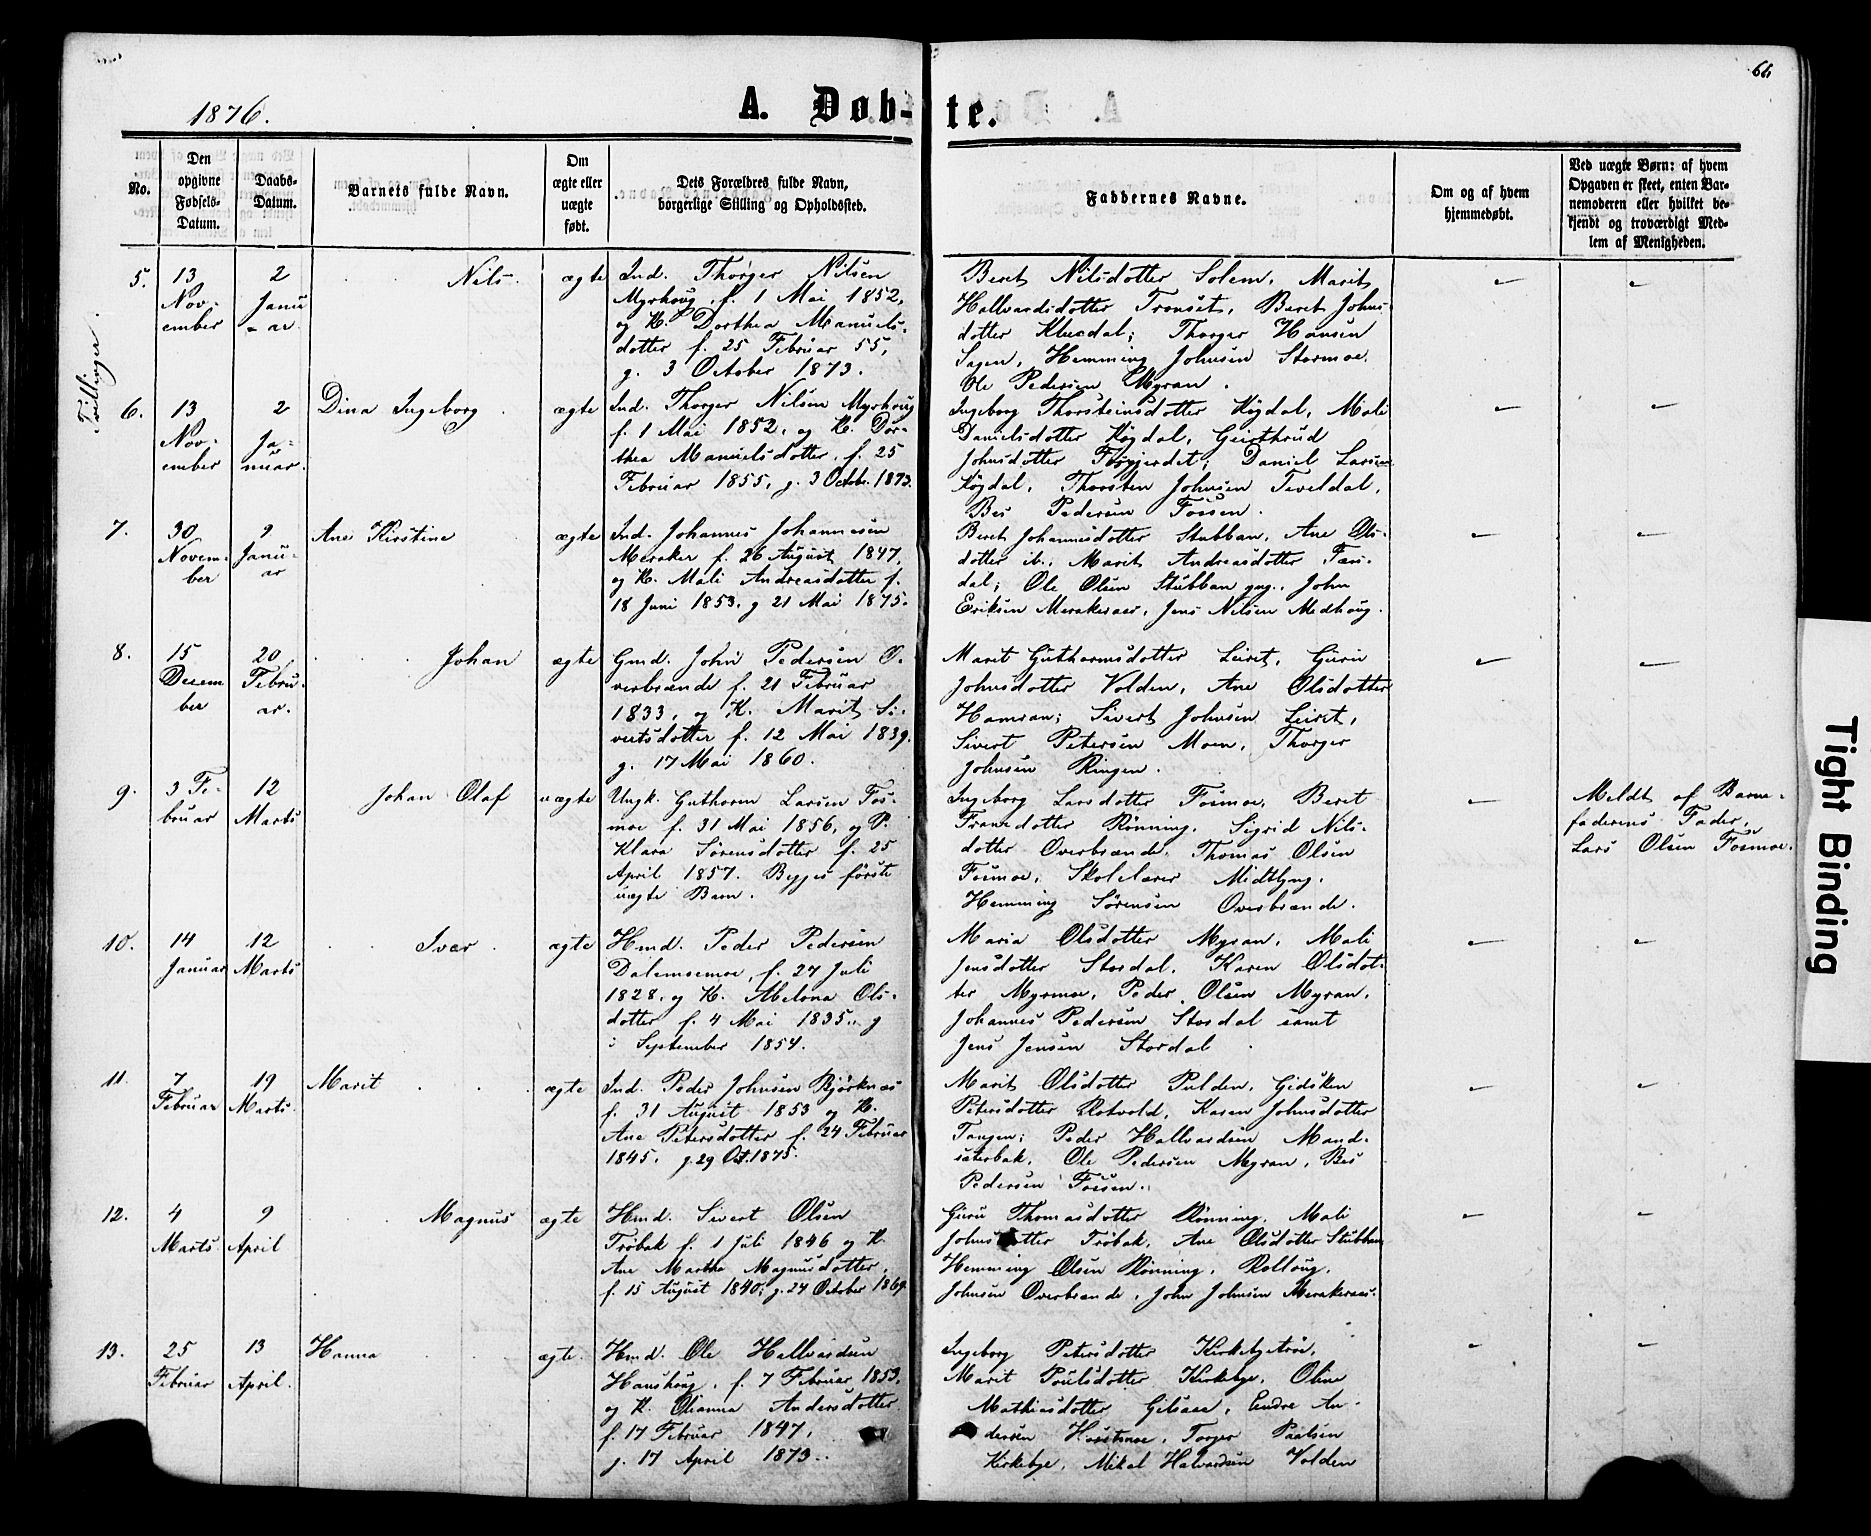 66
1876.
A. Døb-te.
No.
Den opgivne Fødsels-Datum.
Daabs-Datum.
Barnets fulde Navn.
Om ægte eller uægte født.
Dets Forældres fulde Navn, borgerlige Stilling og Opholdssted.
Faddernes Navne.
Om og af hvem hjemmedøbt.
Ved uægte Børn: af hvem Opgaven er skeet, enten Barnemoderen eller hvilket bekjendt og troværdigt Medlem af Menigheden.
Tvillinger.
5.
13 November
2 Januar
Nils
ægte
Ind. Thorger Nilsen
Myrhoug, f. 1 Mai 1852,
og K. Dorthea Manuels-
dotter f. 25 Februar 55,
g. 3 October 1873.
Beret Nilsdotter Solem, Marit
Hallvardsdotter Tronset, Beret Johns-
dotter Kluxdal; Thorger Hansen
Sagen, Hemming Johnsen Stormoe
Ole Pedersen Myran.
6.
13 November
2 Januar.
Dina Ingeborg
ægte
Ind. Thorger Nilsen Myrhoug
f. 1 Mai 1852, og K. Dor-
thea Manuelsdotter, f. 25
Februar 1855, g. 3 Octbr. 1873.
Ingeborg Thorsteinsdotter Køgdal, Mali
Danielsdotter Køgdal, Geirthrud
Johnsdotter; Daniel Larsen
Køgdal, Thorsten Johnsen Teveldal,
Bes Pedersen Fossen.
7.
30 November
9 Januar
Ane Kirstine
ægte
Ind. Johannes Johannesen
Meraker f. 26 August 1847,
og K. Mali Andreasdotter f.
18 Juni 1853, g 21 Mai 1875.
Beret Johannesdotter Stubban, Ane Ols-
dotter ib., Marit Andreasdotter Fær-
dal; Ole Olsen Stubban gng., John
Eriksen Merakeraas, Jens Nilsen Medhoug.
8.
15 Desember
20 Februar.
Johan
ægte
Gmd. John Pedersen O-
verbrænde f. 21 Februar
1833, og K. Marit Si-
vertsdotter f. 12 Mai 1839.
g. 17 Mai 1860.
Marit Guthormsdotter Leiret, Guru
Johnsdotter Volden, Ane Olsdotter
Hamran; Sivert Johnsen Leiret,
Sivert Petersen Moen, Thorger
Johnsen Ringen.
9.
3 Februar
12 Marts
Johan Olaf
uægte
Ungk. Guthorm Larsen Fos-
moe f. 31 Mai 1856, og P.
Klara Sørensdotter f. 25
April 1857. Begges første
uægte Barn.
Ingeborg Larsdotter Fosmoe, Beret
Fransdotter Rønning, Sigrid Nils-
dotter Overbrænde, Thomas Olsen
Fosmoe, Skolelærer Midtlyng,
Hemming Sørensen Overbrænde.
Meldt af Barne-
faderens Fader,
Lars Olsen Fosmoe.
10.
14 Januar
12 Marts
Ivar
ægte
Hmd. Peder Pedersen
Dalemoemoe, f. 27 Juli
1828, og K. Abelona Ols-
dotter f. 4 Mai 1835., g
i September 1854.
Maria Olsdotter Myran, Mali
Jensdotter Stordal, Karen Olsdot-
ter Myrmoe, Peder Olsen Myran,
Johannes Pedersen Stordal samt
Jens Jensen Stordal
11.
7 Februar
19 Marts.
Marit
ægte
Ind. Peder Johnsen Bjørknæs
f. 31 August 1853 og K.
Ane Petersdotter f. 24 Februar
1845, g. 29 Oct. 1875.
Marit Olsdotter Pulden, Gidsken
Petersdotter Rotvold, Karen Johnsdotter
Tangen; Peder Hallvardsen Mand-
sæterbak, Ole Pedersen Myran, Bes
Pedersen Fossen.
12.
4 Marts
9 April
Magnus
ægte
Hmd. Sivert Olsen
Trøbak f. 1 Juli 1846 og K.
Ane Martha Magnusdotter,
f. 15 August 1840, g. 24 October 1869
Guru Thomasdotter Rønning, Mali
Johnsdotter Trøbak, Ane Olsdotter Stubban
Hemming Olsen Rønning, Rolloug
Johnsen Overbrænde, John Johnsen Merakeraas.
13.
25 Februar
13 April.
Hanna
ægte.
Hmd. Ole Hallvardsen
Hanshoug, f. 7 Februar 1853,
og K. Olianna Andersdotter
f. 17 Februar 1847,
g. 17 April 1873.
Ingeborg Petersdotter Kirkebytrø,
Marit Poulsdotter Kirkeby, Oline
Mathiasdotter Gilsaae, Endre An-
dersen, Torger Paalsen
Kirkebye, Mikal Halvardsen Volden
Tight Binding